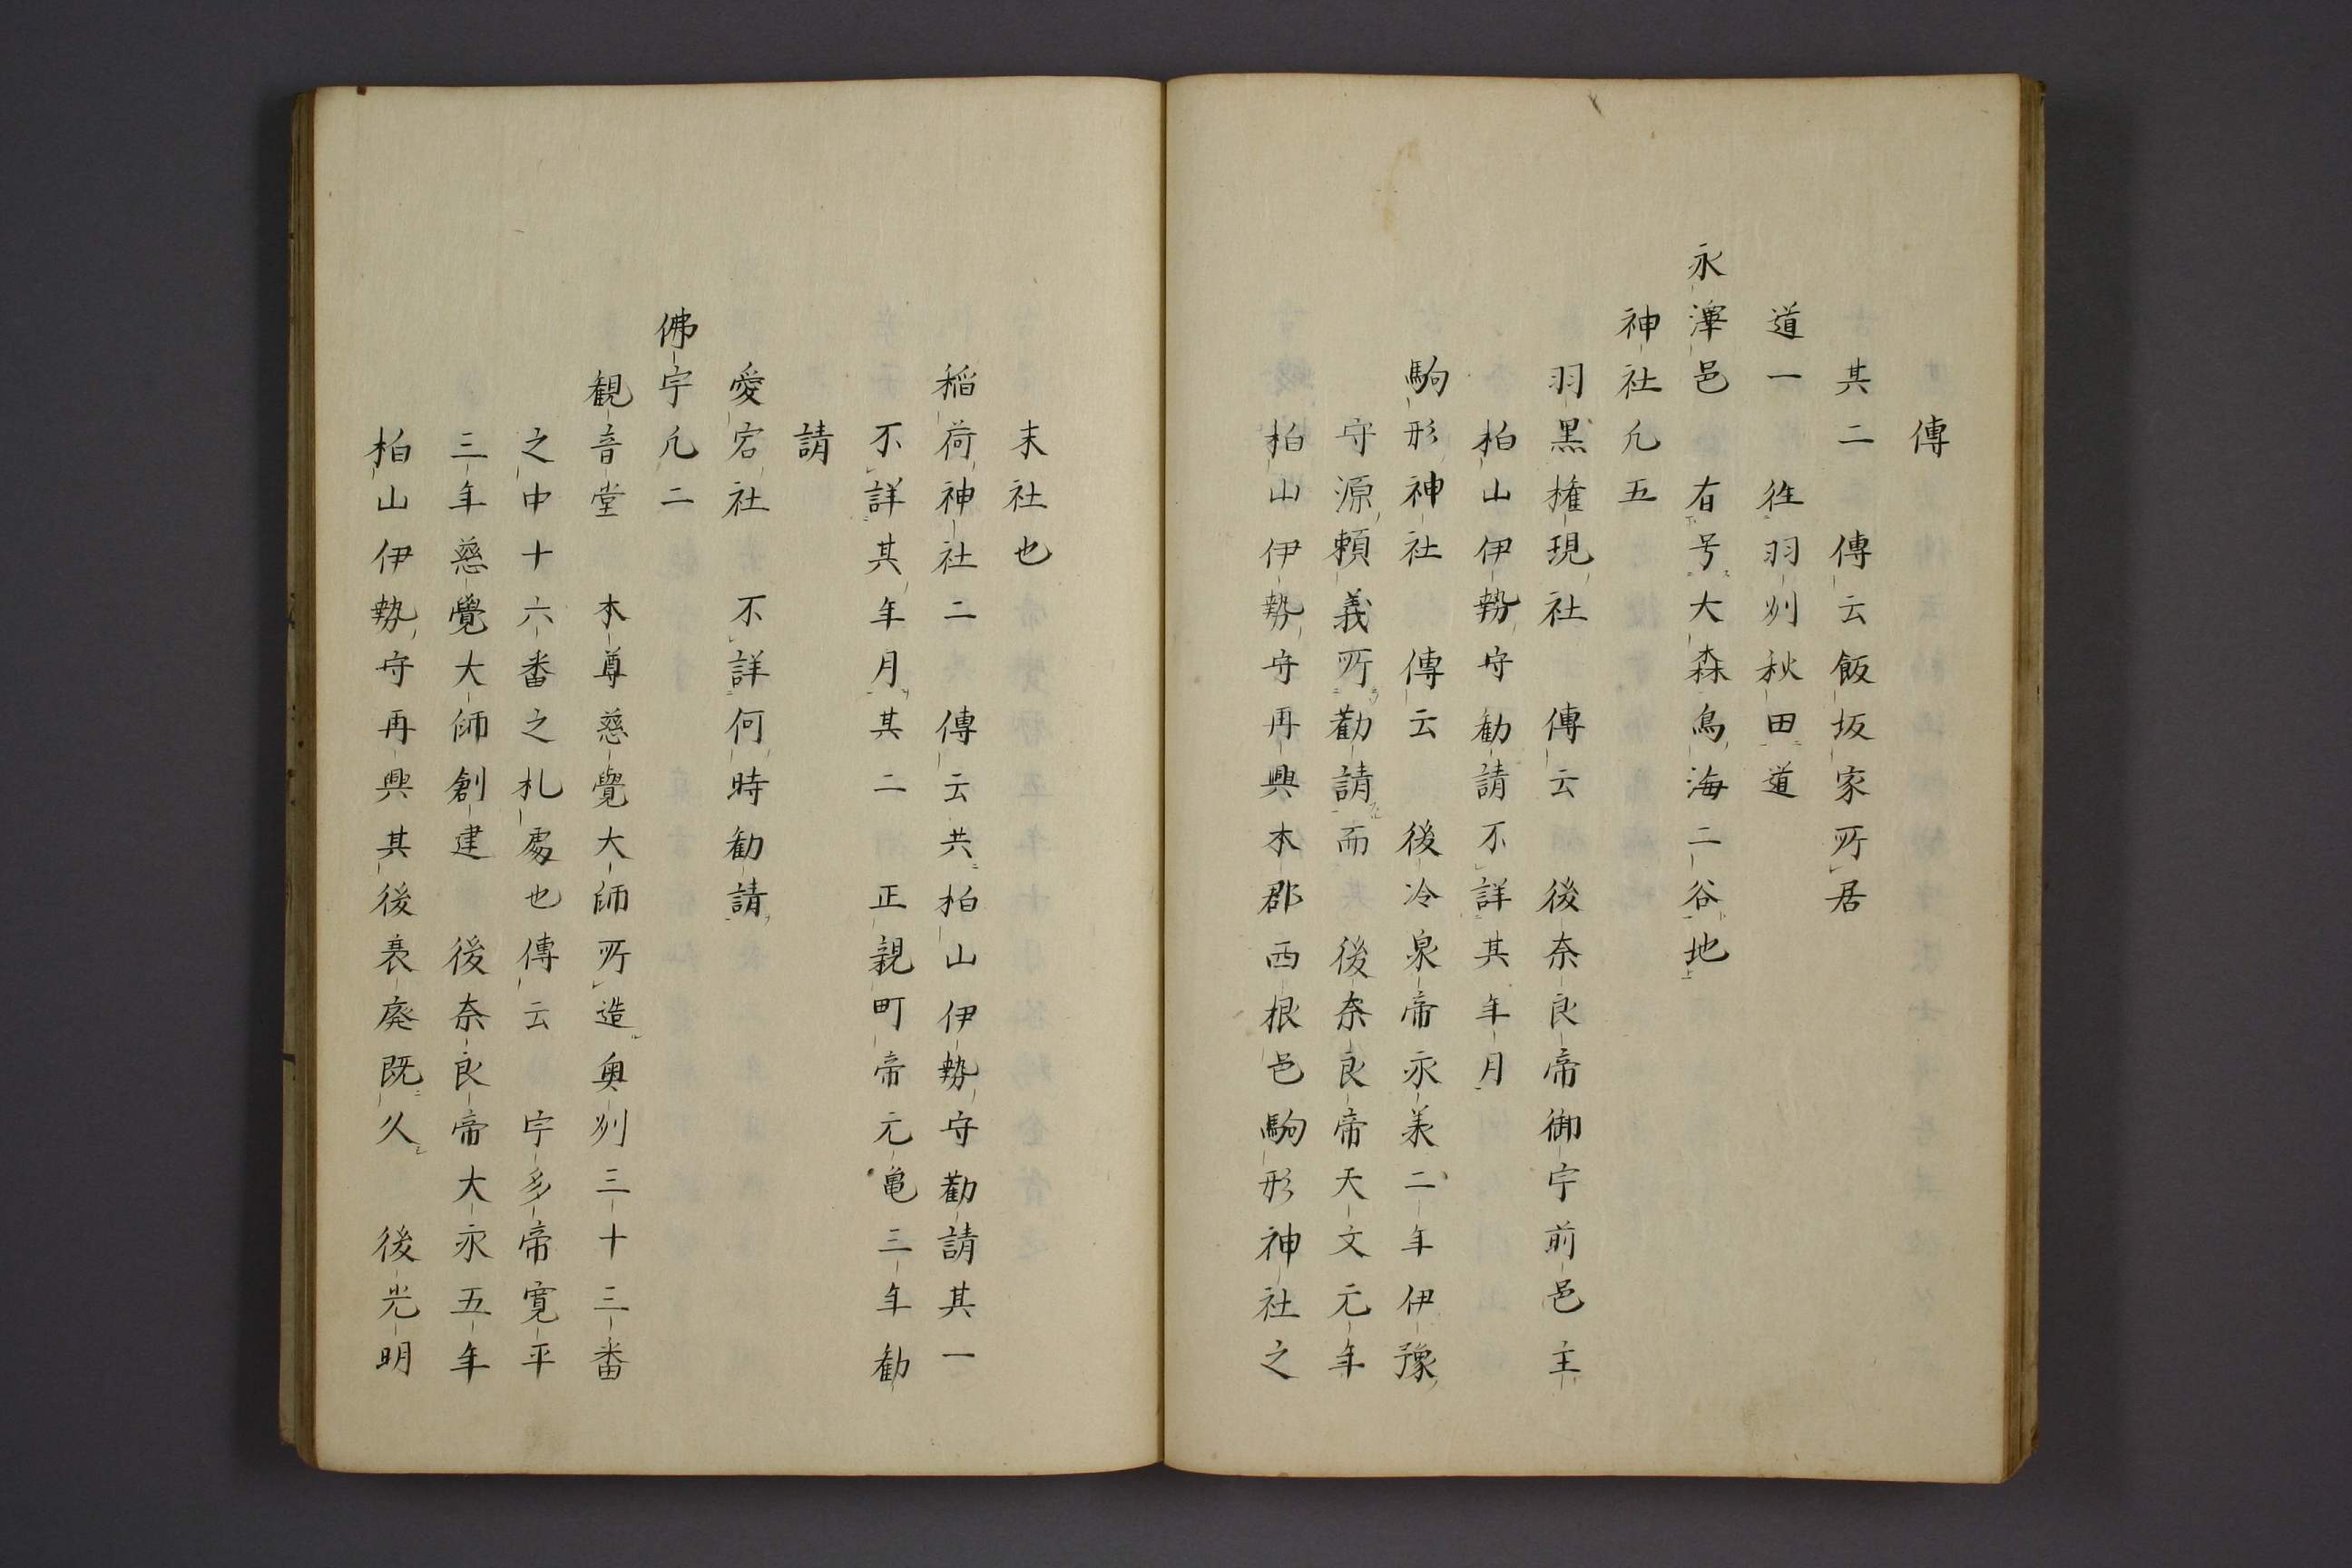 傳
其二　傳云飯坂家所居
道一　徃羽刕秋田道
永澤邑　有号大森鳥海二谷地
神社凡五
羽黒権現社　傳云　後奈良帝御宇前邑主
柏山伊勢守勧請不詳其年月
駒形神社　傳云　後冷泉帝永承二年伊豫
守源頼義所勧請而　後奈良帝天文元年
柏山伊勢守再興本郡西根邑駒形神社之
末社也
稲荷神社二　傳云共柏山伊勢守勧請其一
不詳其年月其二　正親町帝元亀三年勧
請
愛宕社　不詳何時勧請
佛宇凡二
観音堂　本尊慈覺大師所造奥刕三十三番
之中十六番之札處也傳云　宇多帝寛平
三年慈覺大師創建　後奈良帝大永五年
柏山伊勢守再興其後衰廃既久　後光明